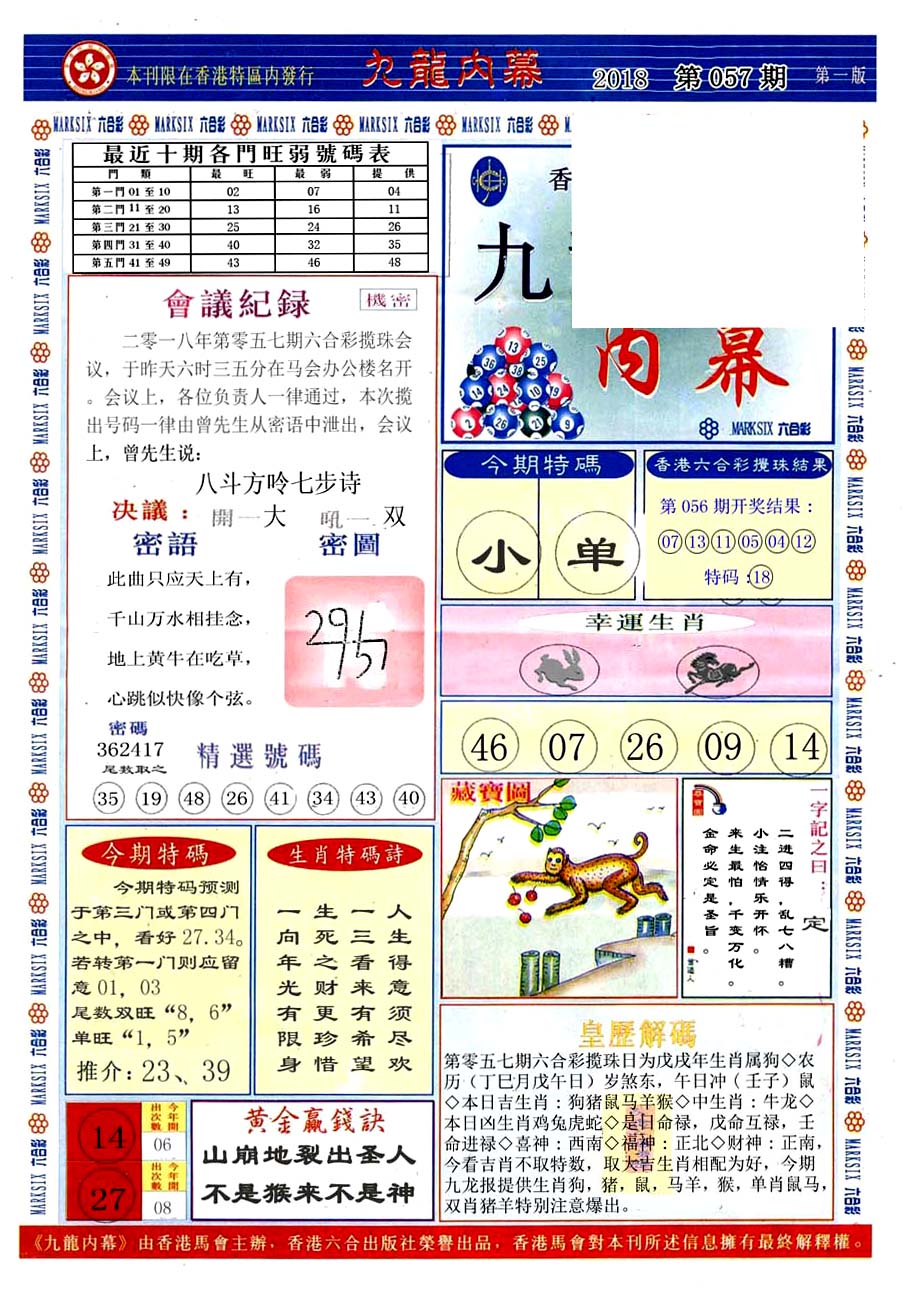 本刊限在香港特區内發行
九龍内幕
2018 第057期 第一版
MARKSIX 六合彩 MARKSIX 六合彩 MARKSIX 六合彩 MARKSIX 六合彩 MARKSIX 六合彩
最近十期各門旺弱號碼表
門類 最旺 最弱 提供
第一門 01 至 10 02 07 04
第二門 11 至 20 13 16 11
第三門 21 至 30 25 24 26
第四門 31 至 40 40 32 35
第五門 41 至 49 43 46 48
會議紀録 機密
二零一八年第零五七期六合彩揽珠会
议，于昨天六时三五分在马会办公楼名开
。会议上，各位负责人一律通过，本次揽
出号码一律由曾先生从密语中泄出，会议
上，曾先生说：
八斗方呤七步诗
决議：開一大 吼一双
密語 密圖
此曲只应天上有，
千山万水相挂念，
地上黄牛在吃草，
心跳似快像个弦。
密碼
362417
尾数取之
精選號碼
35 19 48 26 41 34 43 40
香
九
内幕
13
36 25
14 24 10 19
2 26 21 9
MARKSIX 六合彩
今期特碼
小 单
香港六合彩攪珠結果
第 056 期开奖结果：
07 13 11 05 04 12
特码：18
幸運生肖
46 07 26 09 14
藏寶圖
一字記之曰：定
二进四得，乱七八糟。
小注怡情乐开怀。
来生最怕，千变万化。
金命必定是圣旨。
今期特碼
今期特码预测
于第三门或第四门
之中，看好 27.34。
若转第一门则应留
意 01，03
尾数双旺“8，6”
单旺“1，5”
推介：23、39
生肖特碼詩
人生得意须尽欢
一三看来有希望
生死之财更珍惜
一向年光有限身
皇歷解碼
第零五七期六合彩揽珠日为戊戌年生肖属狗◇农
历（丁巳月戊午日）岁煞东，午日冲（壬子）鼠
◇本日吉生肖：狗猪鼠马羊猴◇中生肖：牛龙◇
本日凶生肖鸡兔虎蛇◇是日命禄，戊命互禄，壬
命进禄◇喜神：西南◇福神：正北◇财神：正南，
今看吉肖不取特数，取大吉生肖相配为好，今期
九龙报提供生肖狗，猪，鼠，马羊，猴，单肖鼠马，
双肖猪羊特别注意爆出。
14 今年開出次數 06
27 今年開出次數 08
黄金贏錢訣
山崩地裂出圣人
不是猴来不是神
《九龍内幕》由香港馬會主辦，香港六合出版社榮譽出品，香港馬會對本刊所述信息擁有最終解釋權。